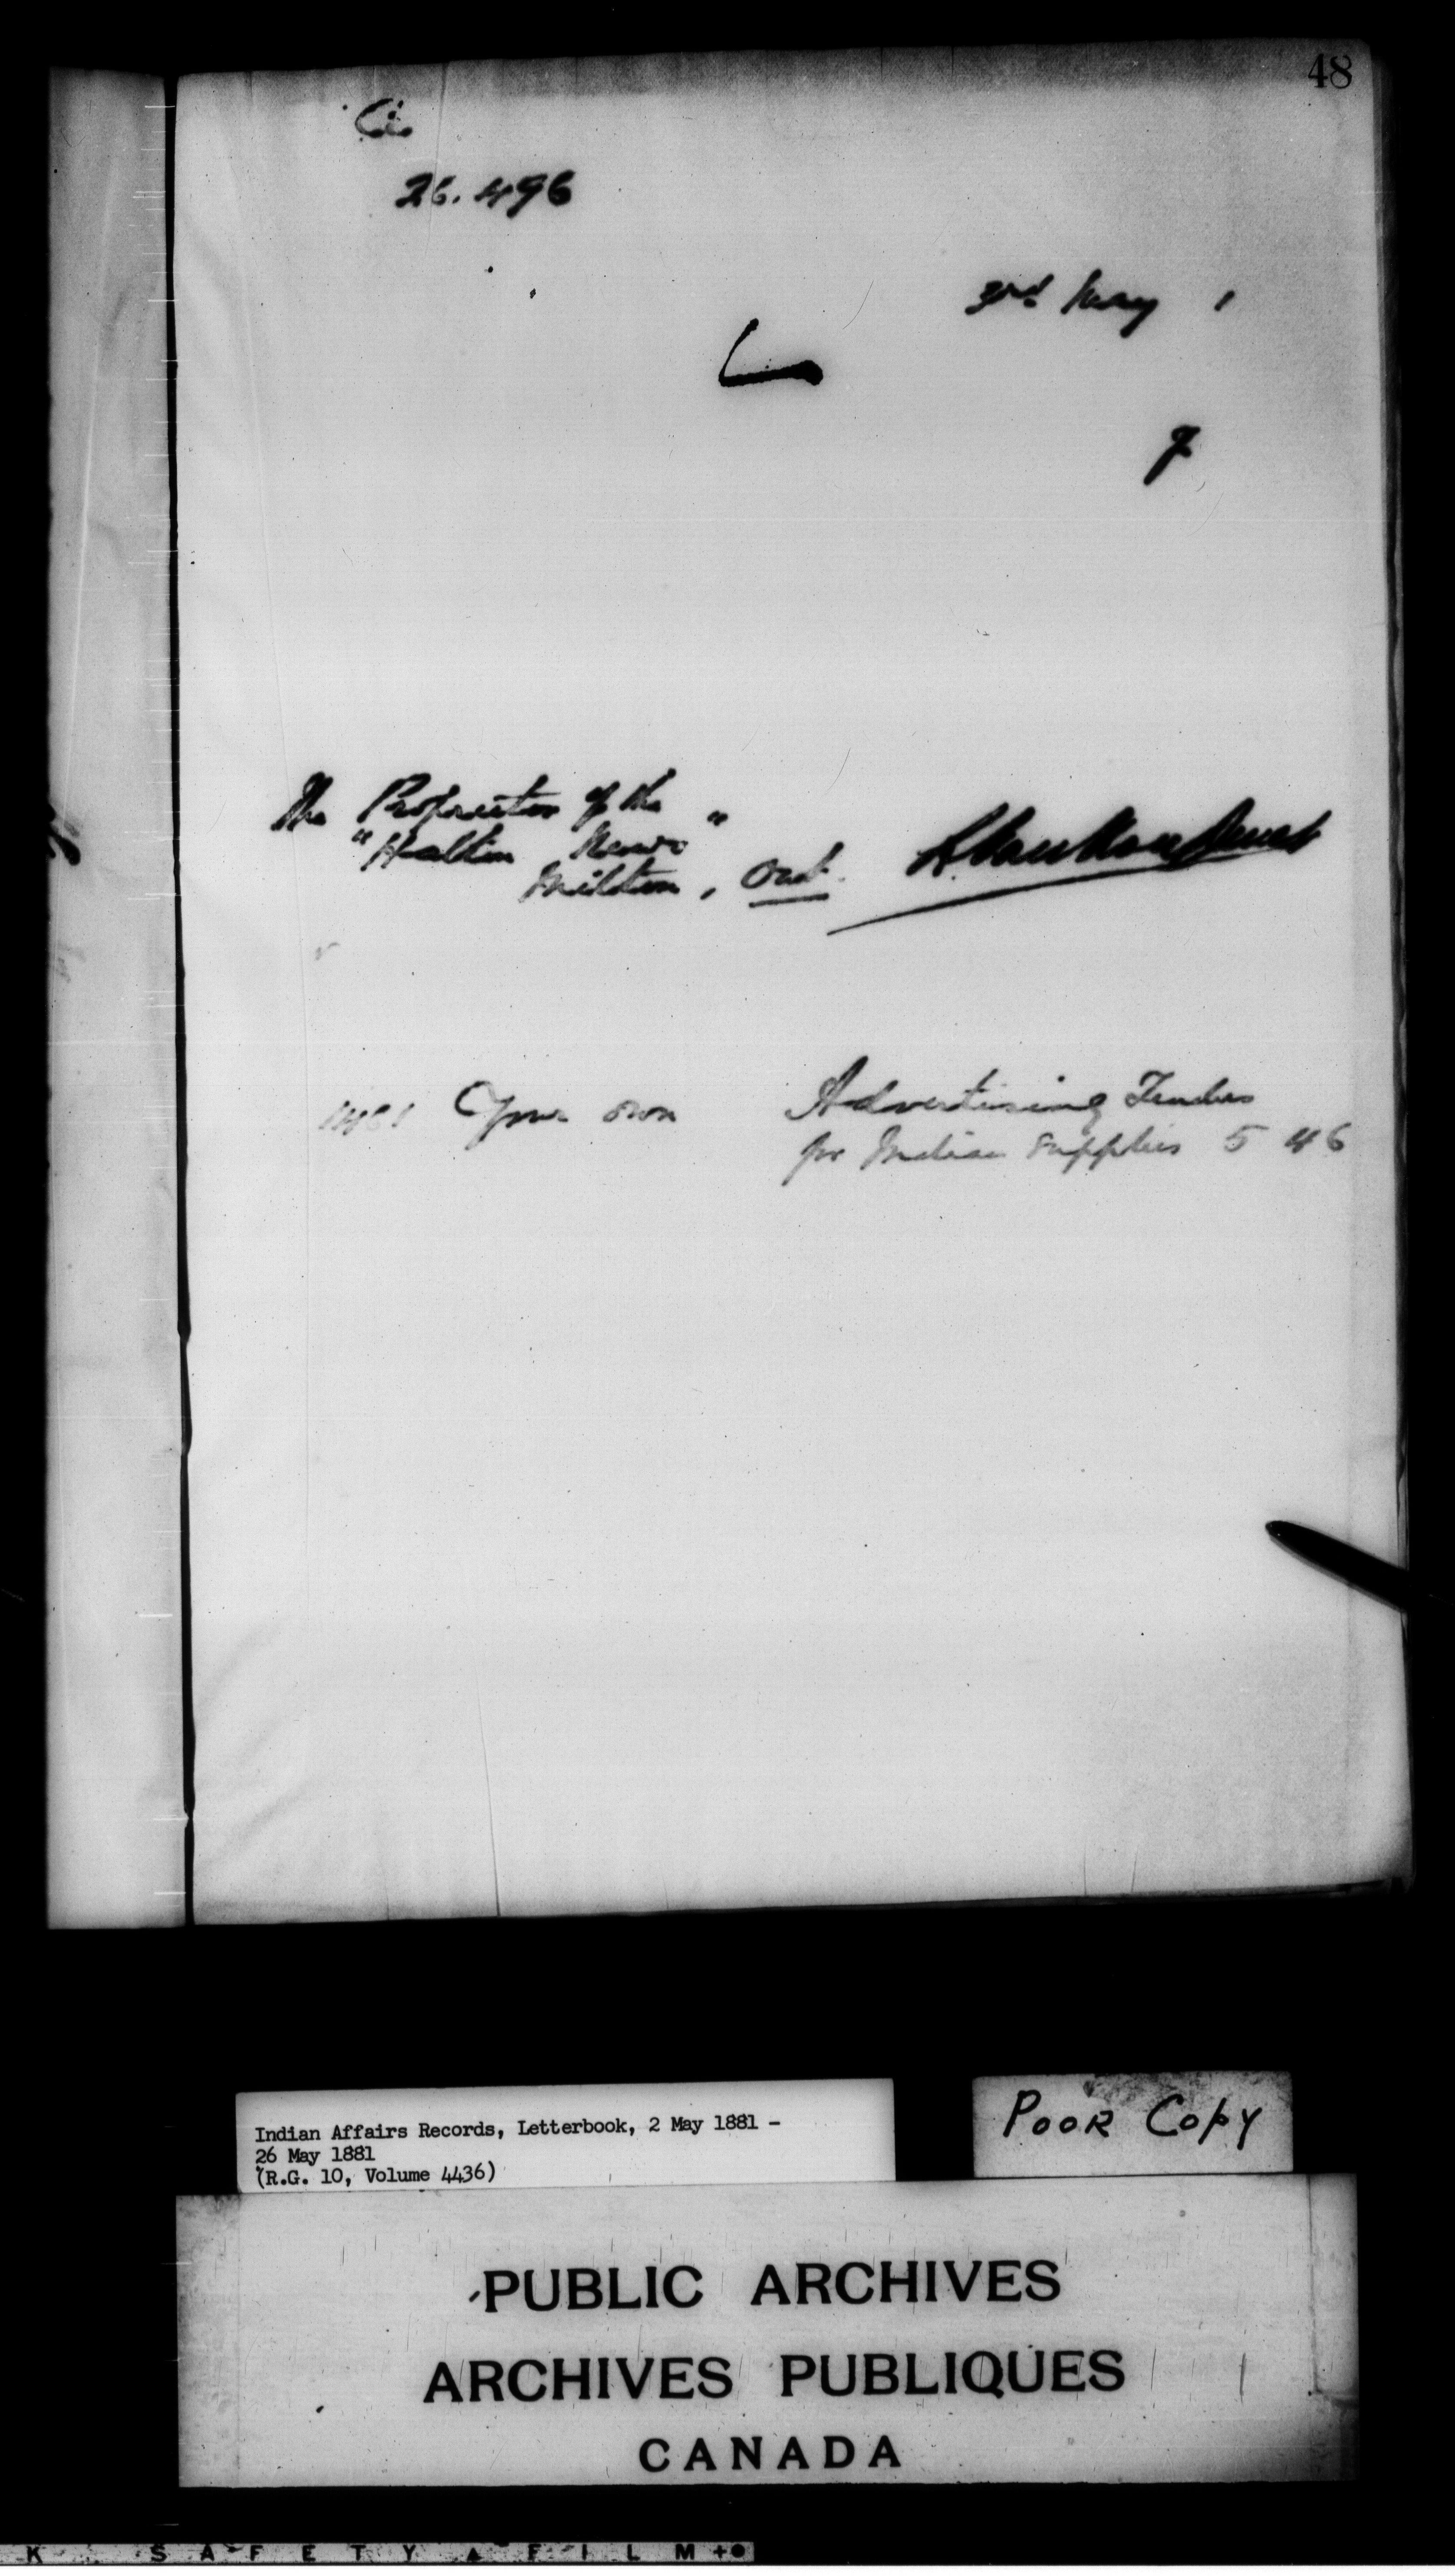 48
26.496
3rd May 1
7
The Proprietor of the
"Halton News"
Milton, Ont.
1481 Your own Advertising Tenders
for Indian Supplies 5 46
Indian Affairs Records, Letterbook, 2 May 1881 -
26 May 1881
(R.G. 10, Volume 4436)
POOR COPY
PUBLIC ARCHIVES
ARCHIVES PUBLIQUES
CANADA
K SAFETY ▲ FILM + ●